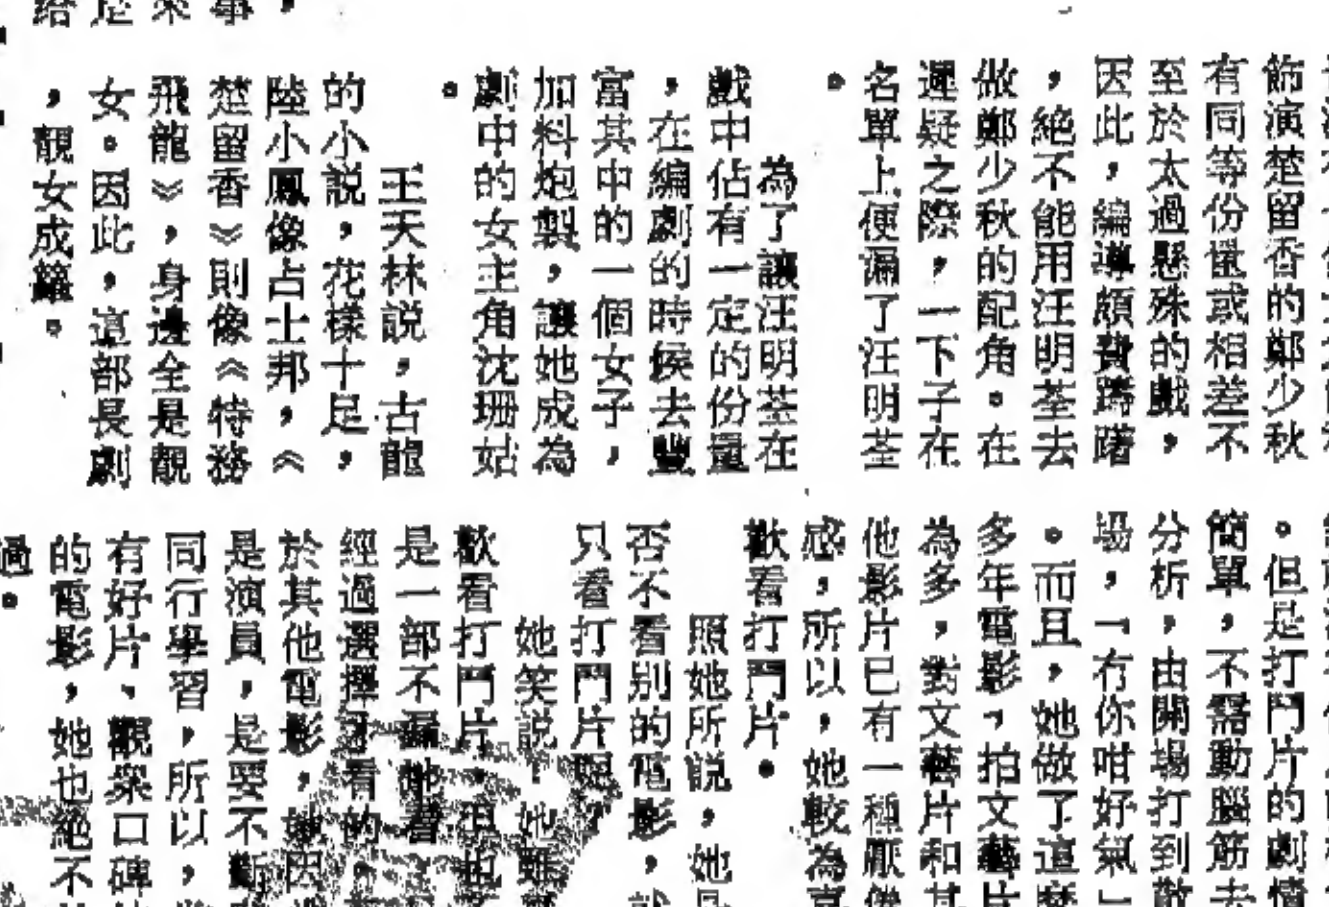 飾演楚留香的鄭少秋
有同等份量或相差不
至於太過懸殊的戲，
因此，編導頗費躊躇
，絕不能用汪明荃去
做鄭少秋的配角。在
遲疑之際，一下子在
名單上便漏了汪明荃
。
為了讓汪明荃在
戲中佔有一定的份量
，在編劇的時候去豐
富其中的一個女子，
加料炮製，讓她成為
劇中的女主角沈珊姑
。
王天林說，古龍
的小說，花樣十足，
陸小鳳像占士邦，《
楚留香》則像《特務
飛龍》，身邊全是靚
女。因此，這部長劇
，靚女成籮。
。但是打鬥片的劇情
簡單，不需動腦筋去
分析，由開場打到散
場，「冇你咁好氣」
。而且，她做了這麼
多年電影，拍文藝片
為多，對文藝片和其
他影片已有一種厭倦
感，所以，她較為喜
歡看打鬥片。
照她所說，她是
否不看別的電影，
只看打鬥片呢？
她笑說！她雖
歡看打鬥片，但也
是一部不漏地看
經過選擇才看的，
於其他電影，她因
是演員，是要不斷
同行學習，所以，
有好片、觀眾口碑
的電影，她也絕不
過。